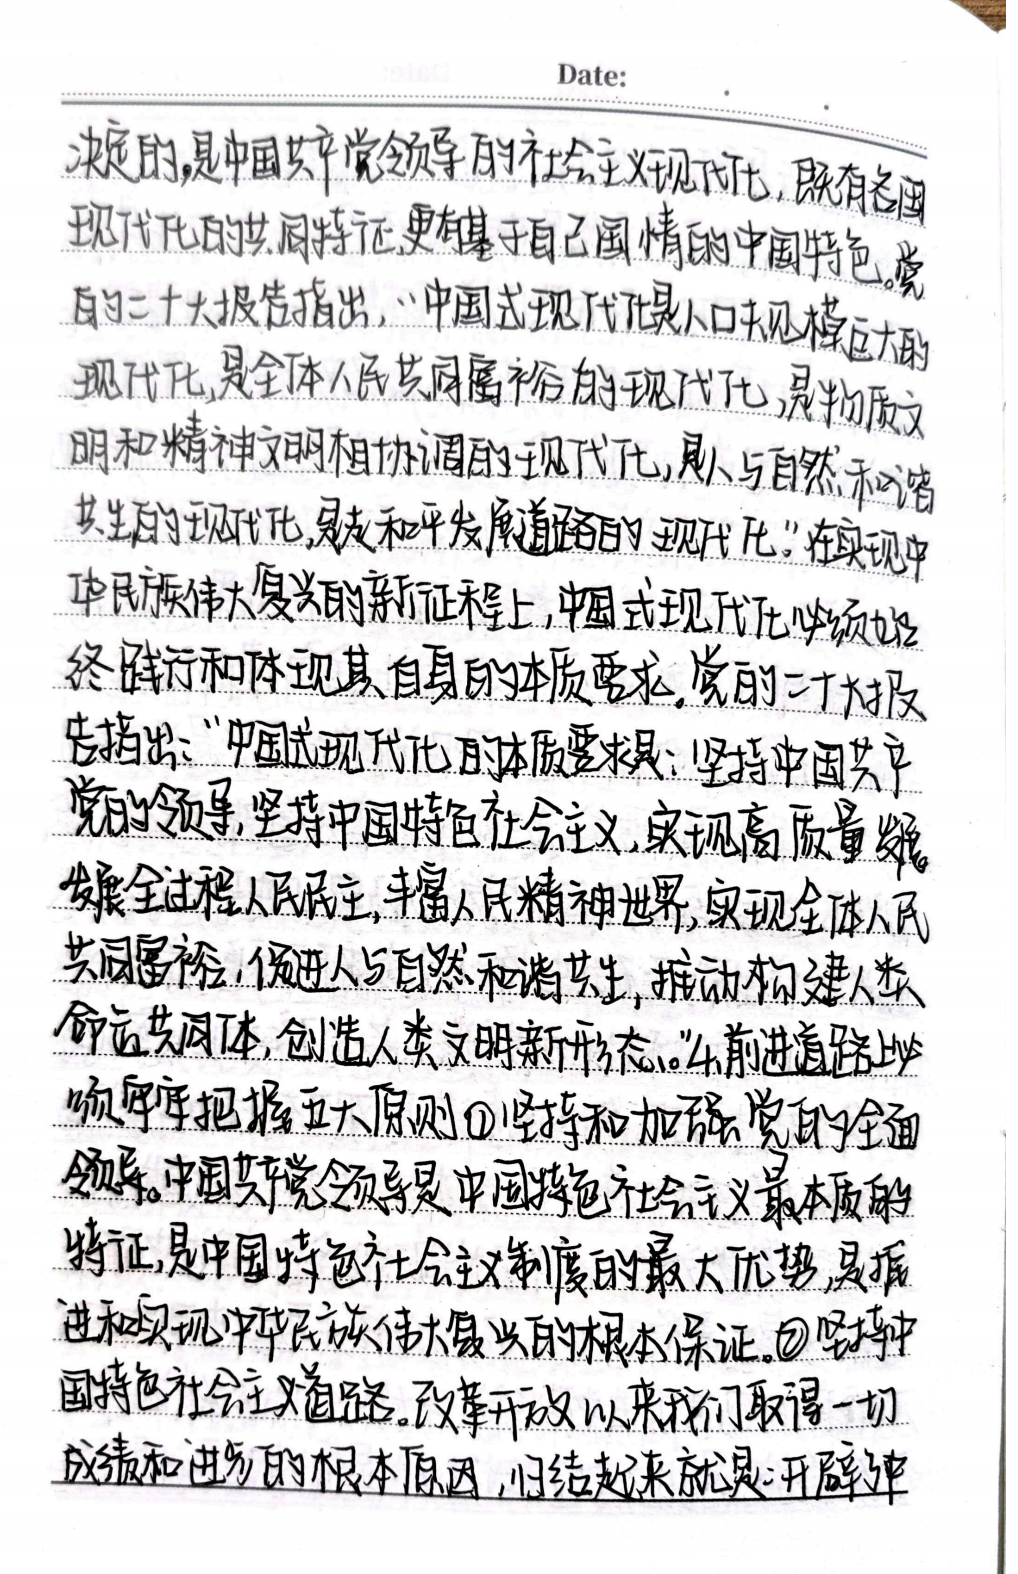 Date:
决定的。是中国共产党领导的社会主义现代化，既有各国
现代化的共同特征，更有基于自己国情的中国特色。党
的二十大报告指出，“中国式现代化是人口规模巨大的
现代化，是全体人民共同富裕的现代化，是物质文
明和精神文明相协调的现代化，是人与自然和谐
共生的现代化，是走和平发展道路的现代化。”在实现中
华民族伟大复兴的新征程上，中国式现代化必须始
终践行和体现其自身的本质要求。党的二十大报
告指出：“中国式现代化的本质要求是：坚持中国共产
党的领导，坚持中国特色社会主义，实现高质量发展。
发展全过程人民民主，丰富人民精神世界，实现全体人民
共同富裕，促进人与自然和谐共生，推动构建人类
命运共同体，创造人类文明新形态。”4.前进道路上必
须牢牢把握五大原则①坚持和加强党的全面
领导。中国共产党领导是中国特色社会主义最本质的
特征，是中国特色社会主义制度的最大优势，是推
进和实现中华民族伟大复兴的根本保证。②坚持中
国特色社会主义道路。改革开放以来我们取得一切
成绩和进步的根本原因，归结起来就是：开辟